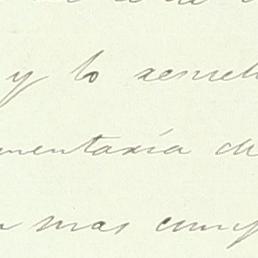 y lo resuel
mentaria de
mas cump